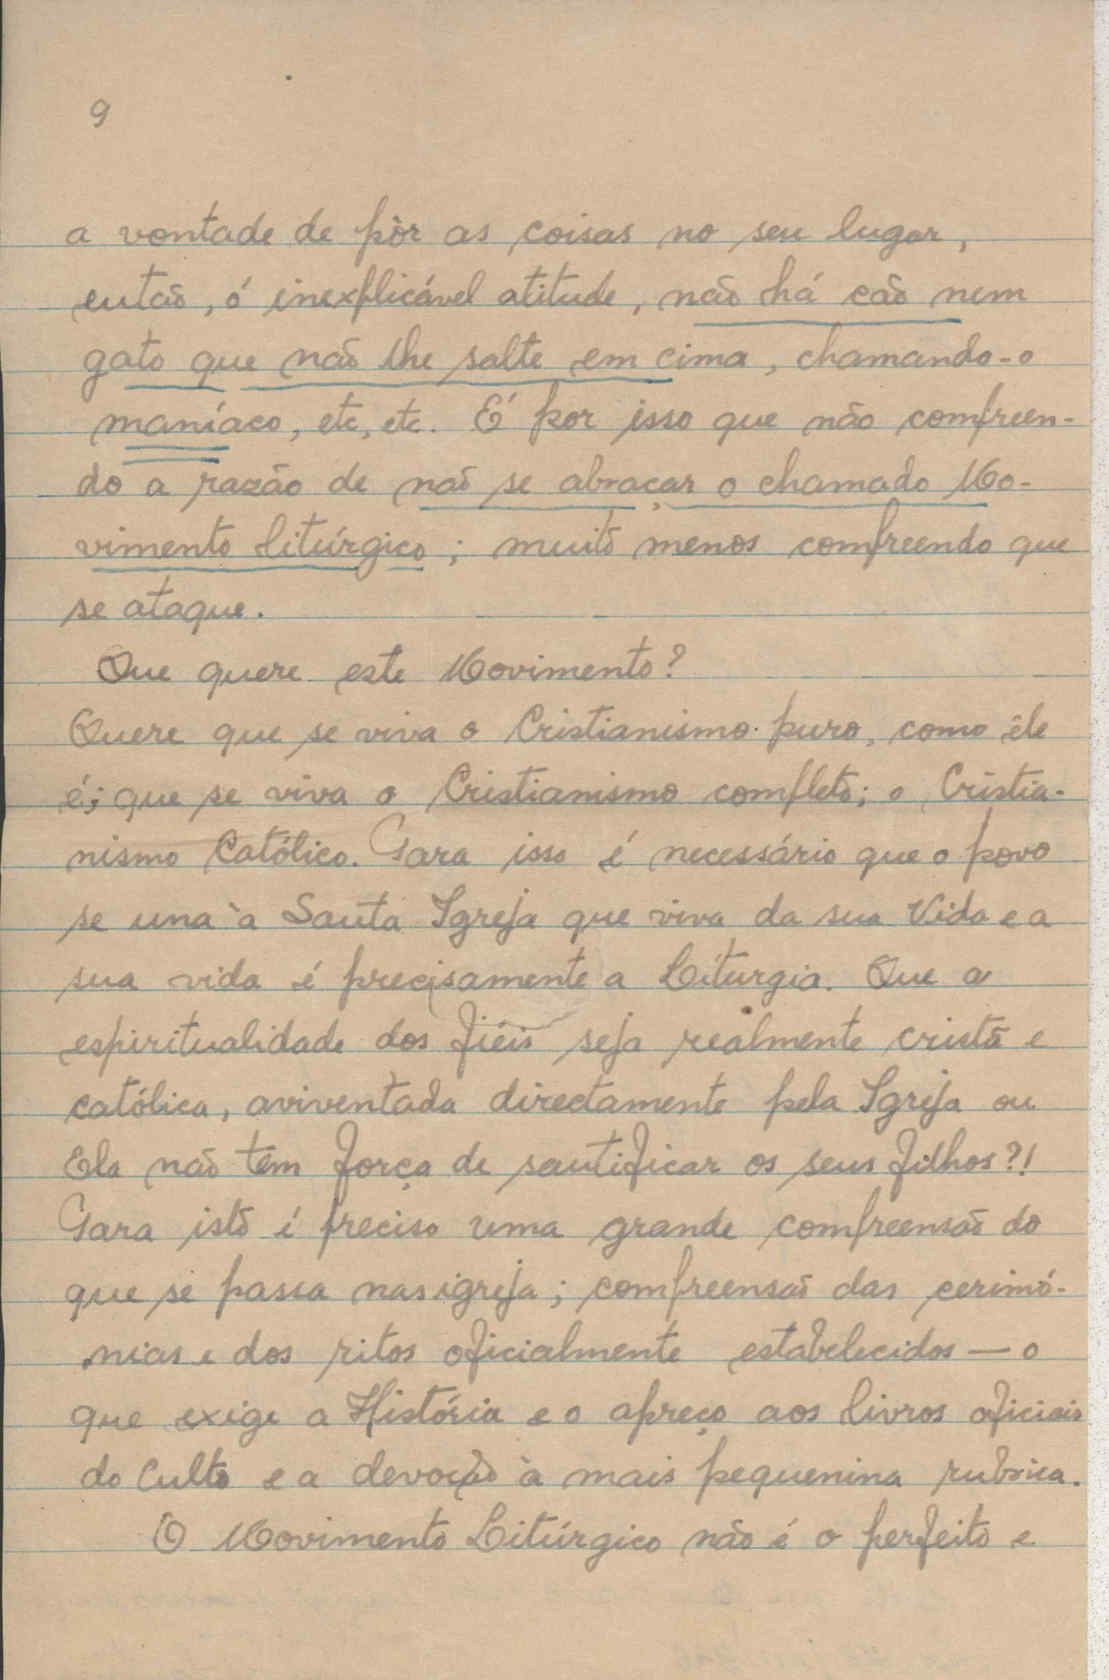 9
a vontade de pôr as coisas no seu lugar,
então, ó inexplicável atitude, não há cão nem
gato que não lhe salte em cima, chamando-o
maníaco, etc, etc. É por isso que não compreen-
do a razão de não se abraçar o chamado Mo-
vimento litúrgico; muito menos compreendo que
se ataque.
Que quere este Movimento?
Quere que se viva o Cristianismo puro, como êle
é; que se viva o Cristianismo completo; o Cristia-
nismo Católico. Para isso é necessário que o povo
se una à Santa Igreja que viva da sua Vida e a
sua vida é precisamente a Liturgia. Que a
espiritualidade dos fiéis seja realmente cristã e
católica, aviventada directamente pela Igreja ou
Ela não tem força de santificar os seus filhos?!
Para isto é preciso uma grande compreensão do
que se passa nas igreja; compreensão das cerimó-
nias e dos ritos oficialmente estabelecidos — o
que exige a História e o apreço aos livros oficiais
do Culto e a devoção à mais pequenina rubrica.
O Movimento Litúrgico não é o perfeito e